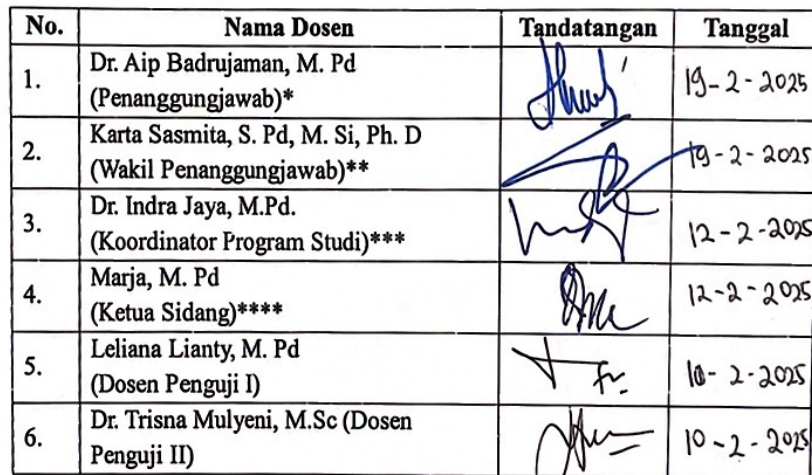 No. Nama Dosen Tandatangan Tanggal
1. Dr. Aip Badrujaman, M. Pd
(Penanggungjawab)* 19-2-2025
2. Karta Sasmita, S. Pd, M. Si, Ph. D
(Wakil Penanggungjawab)** 19-2-2025
3. Dr. Indra Jaya, M.Pd.
(Koordinator Program Studi)*** 12-2-2025
4. Marja, M. Pd
(Ketua Sidang)**** 12-2-2025
5. Leliana Lianty, M. Pd
(Dosen Penguji I) 10-2-2025
6. Dr. Trisna Mulyeni, M.Sc (Dosen
Penguji II) 10-2-2025